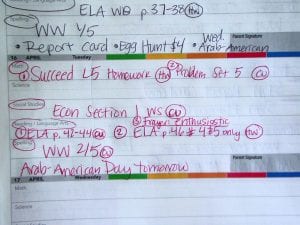 ELA WB p.37-38 HW
Spelling
WW 1/5
• Report card • Egg Hunt $4 • Wed. Arab-American
Parent Signature
16 APRIL Tuesday
Math
① Succeed L5 Homework HW ② Problem Set 5 CW
Science
Social Studies
Econ Section 1 WS CW
Reading / Language Arts
③ Frayer Enthusiastic
① ELA p.42-44 CW ② ELA p.46 #4$5 only HW
Spelling
WW 2/5 CW
Arab-American Day tomorrow
Parent Signature
17 APRIL Wednesday
Math
Science